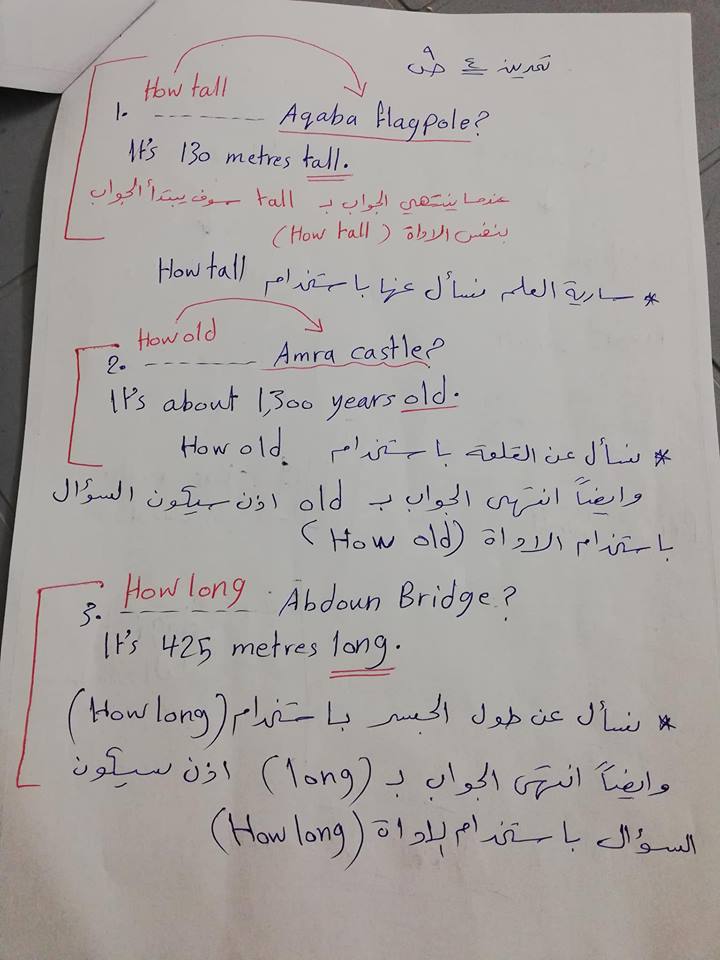 تمرين ٤ ص ٩
How tall
1. ---------- Aqaba flagpole?
It's 130 metres tall.
عندما ينتهي الجواب بـ tall سوف يبتدأ الجواب
بنفس الاداة (How tall)
* سارية العلم نسأل عنها باستخدام How tall
How old
2. ---------- Amra castle?
It's about 1,300 years old.
* نسأل عن القلعة باستخدام How old.
وايضاً انتهى الجواب بـ old اذن سيكون السؤال
باستخدام الاداة (How old)
How long
3. ---------- Abdoun Bridge?
It's 425 metres long.
* نسأل عن طول الجسر باستخدام (How long)
وايضاً انتهى الجواب بـ (long) اذن سيكون
السؤال باستخدام الاداة (How long)